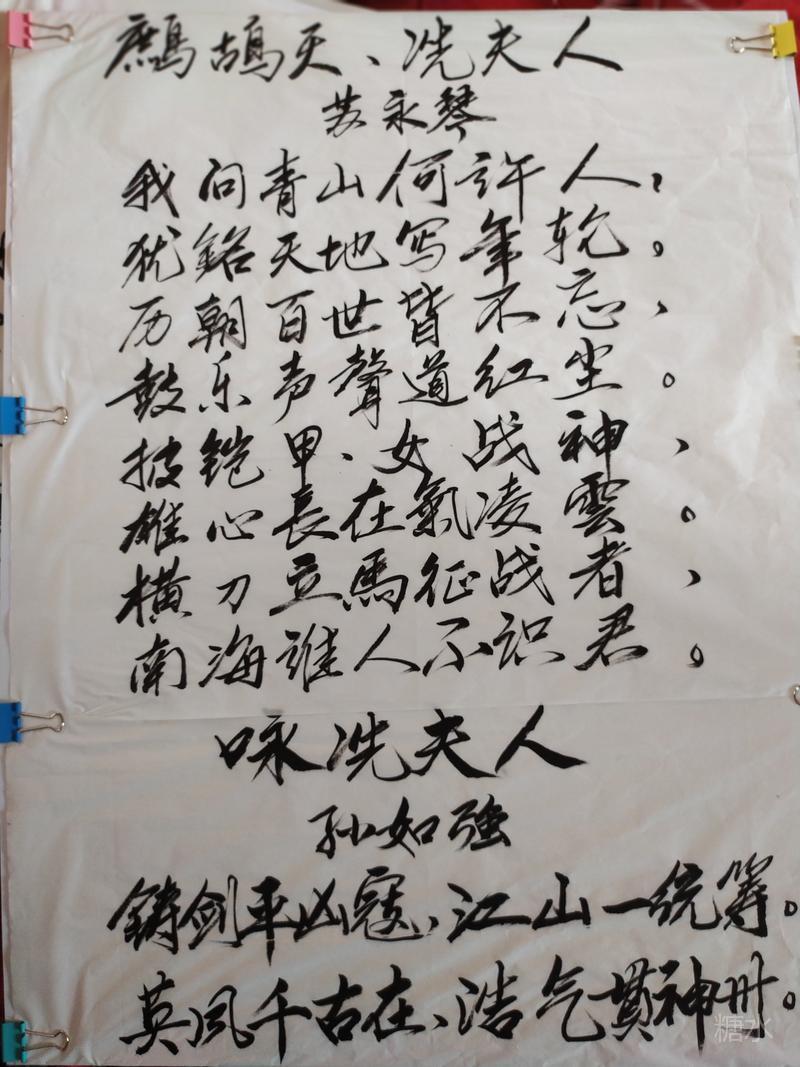 鹧鸪天、冼夫人
苏永琴
我问青山何许人，
犹铭天地写年轮。
历朝百世皆不忘，
鼓乐声声道红尘。
披铠甲、女战神，
雄心長在氣凌雲。
横刀立馬征战者，
南海谁人不识君。
咏冼夫人
孙如强
铸剑平凶寇、江山一统筹。
英风千古在、浩气贯神州。
糖水